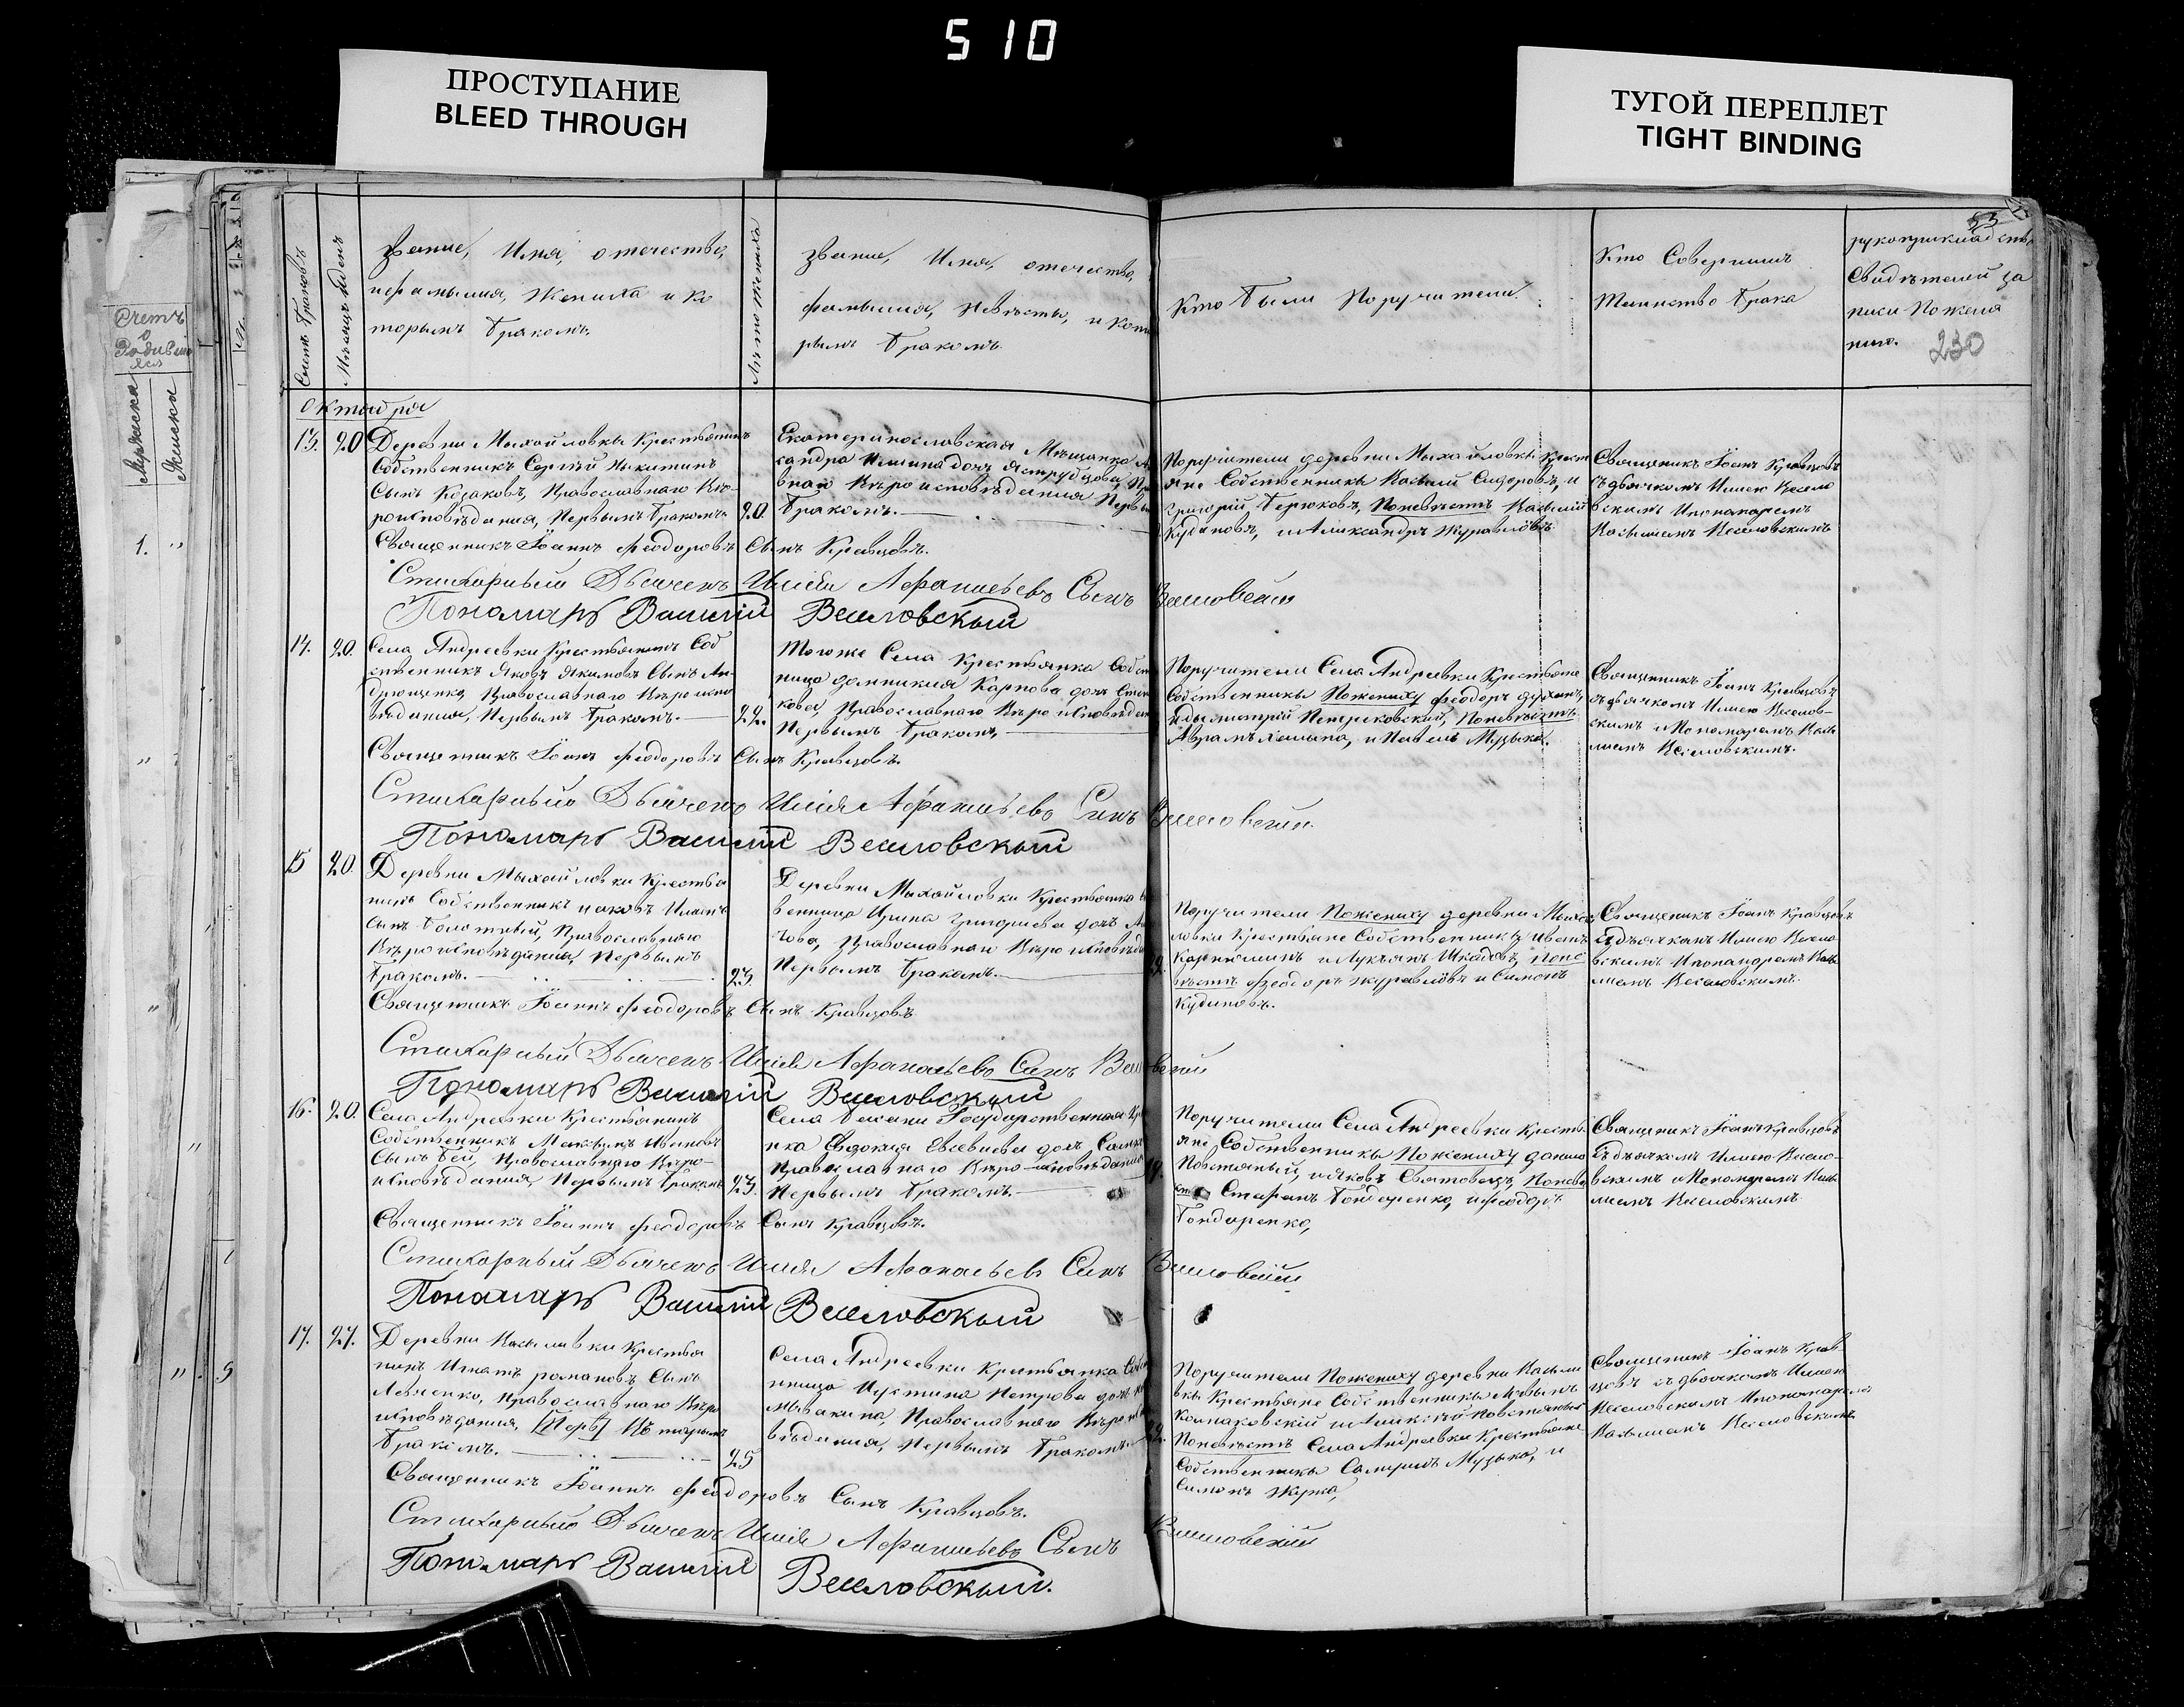 510
ПРОСТУПАНИЕ
BLEED THROUGH
ТУГОЙ ПЕРЕПЛЕТ
TIGHT BINDING
53
230
Счетъ
Мужеска
Женска
1.
Счетъ браковъ
Мѣсяцъ и день
Звание, Имя, отечество,
и фамылия, жениха и ко
торымъ бракомъ.
Звание, Имя, отечество,
фамылия, невѣсты, и кото
рымъ бракомъ.
Кто были Поручители.
Кто Совершилъ
Таинство брака
Свидѣтелей за
писи Пожела
нию.
Октября
13. 20
Деревни Мыхайловки Крестьянинъ
Собственникъ Сергѣй Никитинъ
Сынъ Козаковъ, Православнаго Вѣ-
роисповѣдания, Первымъ бракомъ.
20.
Екатеринославская Мѣщанка
вная Вѣроисповѣдания Первы
бракомъ.
Поручители деревни Мыхайловки Крест
яне Собственникы Касый Сидоровъ, и
Григорий Бирюковъ, Поневѣстѣ
и Александръ Журавлёвъ
Священникъ Iоанъ Кравцовъ
съ дьячкомъ Илиею Весело
вскимъ и пономаремъ
Васылиемъ Веселовскимъ
Священникъ Iоаннъ Феодоровъ Сынъ Кравцовъ.
Стихарный Дьячекъ Илия Афанасьевъ Сынъ Веселовский
Пономарь Василий Веселовскый
14. 20.
Села Андреевки Крестьянинъ Соб
ственникъ Яковъ Якимовъ Сынъ Ан-
дрющенко, Православнаго Вѣроиспо
вѣдания, Первымъ бракомъ.
22.
Тогоже Села Крестьянка Собст
ница Домникия Карпова дочь
кова, Православнаго Вѣроисповѣдан
Первымъ бракомъ,
Поручители Села Андреевки Крестьяне
Собственникы Пожениху Феодоръ
и Дымытрий Петрековский, Поневѣстѣ
Аврамъ и Павелъ Музыка.
Священникъ Iоанъ Кравцовъ
съ дьячкомъ Илиею Веселов-
скимъ и Пономаремъ Васы
лиемъ Веселовскимъ.
Священникъ Iоанъ Феодоровъ Сынъ Кравцовъ.
Стихарный Дьячекъ Илия Афанасьевъ Синъ Веселовский
Пономарь Василий Веселовскый
15 20.
Деревни Мыхайловки Крестья
нинъ Собственникъ Иаковъ
сынъ Болотный, Православнаго
Вѣроисповѣдания, Первымъ
бракомъ.
23.
Деревни Мыхайловки Крестьянка
венница Ирина Григориева дочь
Православнаго Вѣроисповѣда
Первымъ бракомъ.
Поручители Пожениху деревни Мыхай
ловки Крестьяне Собственникы Иванъ
и Лукьянъ Шкадовъ, Поне
вѣстѣ Феодоръ Журавлёвъ и Симонъ
Кудиновъ.
Священникъ Iоанъ Кравцовъ
съ дьячкомъ Илиею Весело
вскимъ и пономаремъ Васы
лиемъ Веселовскимъ.
Священникъ Iоаннъ Феодоровъ Сынъ Кравцовъ
Стихарный Дьячекъ Илия Афанасьевъ Синъ Веселовский
Пономарь Василий Веселовскый
16. 20.
Села Андреевки Крестьянинъ
Собственникъ Максымъ Ивановъ
Сынъ Бей, Православнаго Вѣро-
исповѣдания, Первымъ бракомъ
23.
Села Государственная Кре
нка Евдокия Евсевиева дочь
Православнаго Вѣро-исповѣдания
Первымъ бракомъ.
Поручители Села Андреевки Кресть
яне Собственникы Пожениху
и Яковъ Святовецъ, Поневѣ
стѣ Стефанъ Бондаренко, и Феодоръ
Бондаренко,
Священникъ Iоанъ Кравцовъ
съ дьячкомъ Илиею Весело-
вскимъ и Пономаремъ Васы
лиемъ Веселовскимъ
Священникъ Iоаннъ Феодоровъ Сынъ Кравцовъ.
Стихарный Дьячекъ Илия Афанасьевъ Синъ Веселовский
Пономарь Василий Веселовскый
17. 27.
Деревни Васылевки Крестья
нинъ Игнатъ романовъ Сынъ
Левченко, Православнаго Вѣро
исповѣдания, [Перв] Вторымъ
бракомъ.
25
Села Андреевки Крестьянка Собст
нница Иустина Петрова дочь
Православнаго Вѣроиспо
вѣдания, Первымъ бракомъ.
22.
Поручители Пожениху деревни Васыле
вкы Крестьяне Собственникы
Колпаковский и
Поневѣстѣ Села Андреевки Крестьяне
Собственникы Музыка, и
Симонъ Журжа,
Священникъ Iоанъ Крав-
цовъ съ дьячкомъ Илиею
Веселовскимъ и пономаремъ
Васылиемъ Веселовскимъ
Священникъ Iоаннъ Феодоровъ Сынъ Кравцовъ.
Стихарный Дьячекъ Илия Афанасьевъ Сынъ Веселовский
Пономарь Василий Веселовскый.